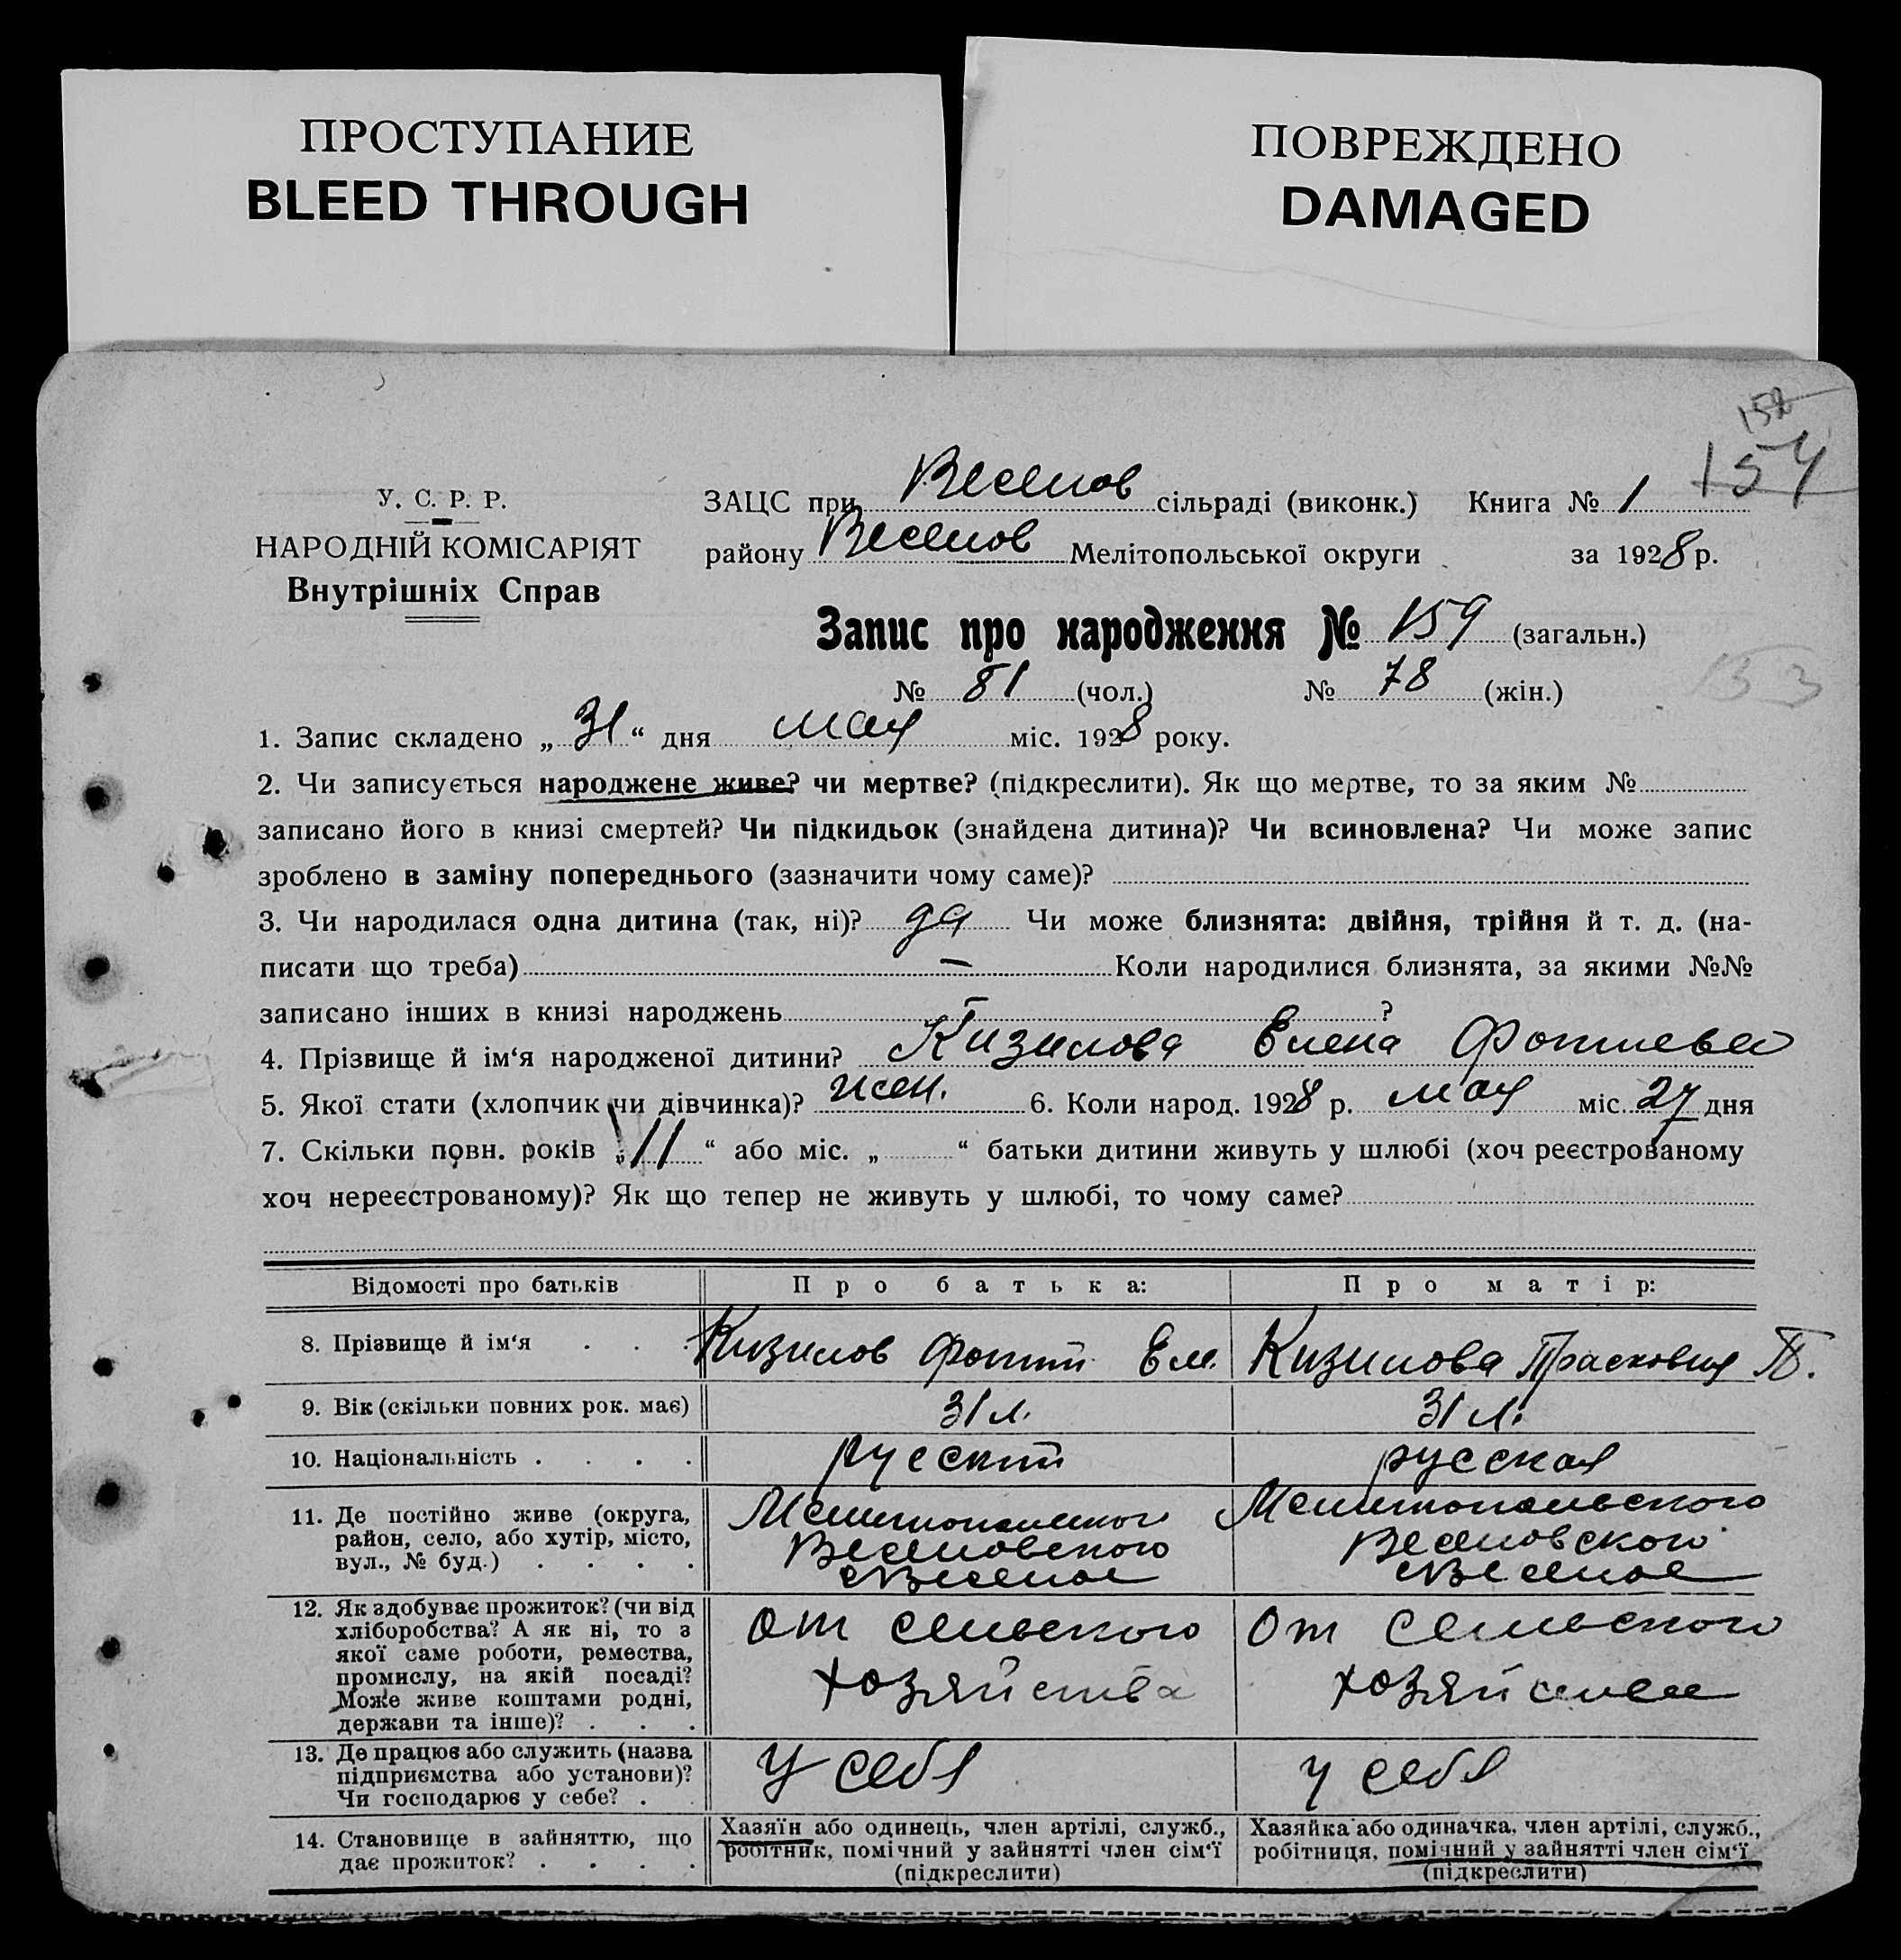 ПРОСТУПАНИЕ
BLEED THROUGH
ПОВРЕЖДЕНО
DAMAGED
152
154
У. С. Р. Р.
НАРОДНІЙ КОМІСАРІЯТ
Внутрішніх Справ
ЗАЦС при Веселов сільраді (виконк.) Книга № 1
району Веселов Мелітопольської округи за 1928 р.
Запис про народження № 159 (загальн.)
№ 81 (чол.) № 78 (жін.)
153
1. Запис складено „31“ дня мая міс. 1928 року.
2. Чи записується народжене живе? чи мертве? (підкреслити). Як що мертве, то за яким №
записано його в книзі смертей? Чи підкидьок (знайдена дитина)? Чи всиновлена? Чи може запис
зроблено в заміну попереднього (зазначити чому саме)?
3. Чи народилася одна дитина (так, ні)? да Чи може близнята: двійня, трійня й т. д. (на-
писати що треба) — Коли народилися близнята, за якими №№
записано інших в книзі народжень — ?
4. Прізвище й ім‘я народженої дитини? Кизилова Елена Фотиева
5. Якої стати (хлопчик чи дівчинка)? жен. 6. Коли народ. 1928 р. мая міс. 27 дня
7. Скільки повн. років „11“ або міс. „ “ батьки дитини живуть у шлюбі (хоч реєстрованому
хоч нереєстрованому)? Як що тепер не живуть у шлюбі, то чому саме?
Відомості про батьків Про батька: Про матір:
8. Прізвище й ім‘я . . . Кизилов Фотий Ем. Кизилова Прасковия П.
9. Вік (скільки повних рок. має) 31 л. 31 л.
10. Національність . . . . русский русская
11. Де постійно живе (округа,
район, село, або хутір, місто,
вул., № буд.) . . . .
Мелитопольского
Веселовского
с Веселое
Мелитопольского
Веселовского
с Веселое
12. Як здобуває прожиток? (чи від
хліборобства? А як ні, то з
якої саме роботи, ремества,
промислу, на якій посаді?
Може живе коштами родні,
держави та інше)? . . .
от сельского
хозяйства
от сельского
хозяйства
13. Де працює або служить (назва
підприємства або установи)?
Чи господарює у себе? .
У себя
у себя
14. Становище в зайняттю, що
дає прожиток? . . . .
Хазяїн або одинець, член артілі, служб.,
робітник, помічний у зайнятті член сім‘ї
(підкреслити)
Хазяйка або одиначка, член артілі, служб.,
робітниця, помічний у зайнятті член сім‘ї
(підкреслити)